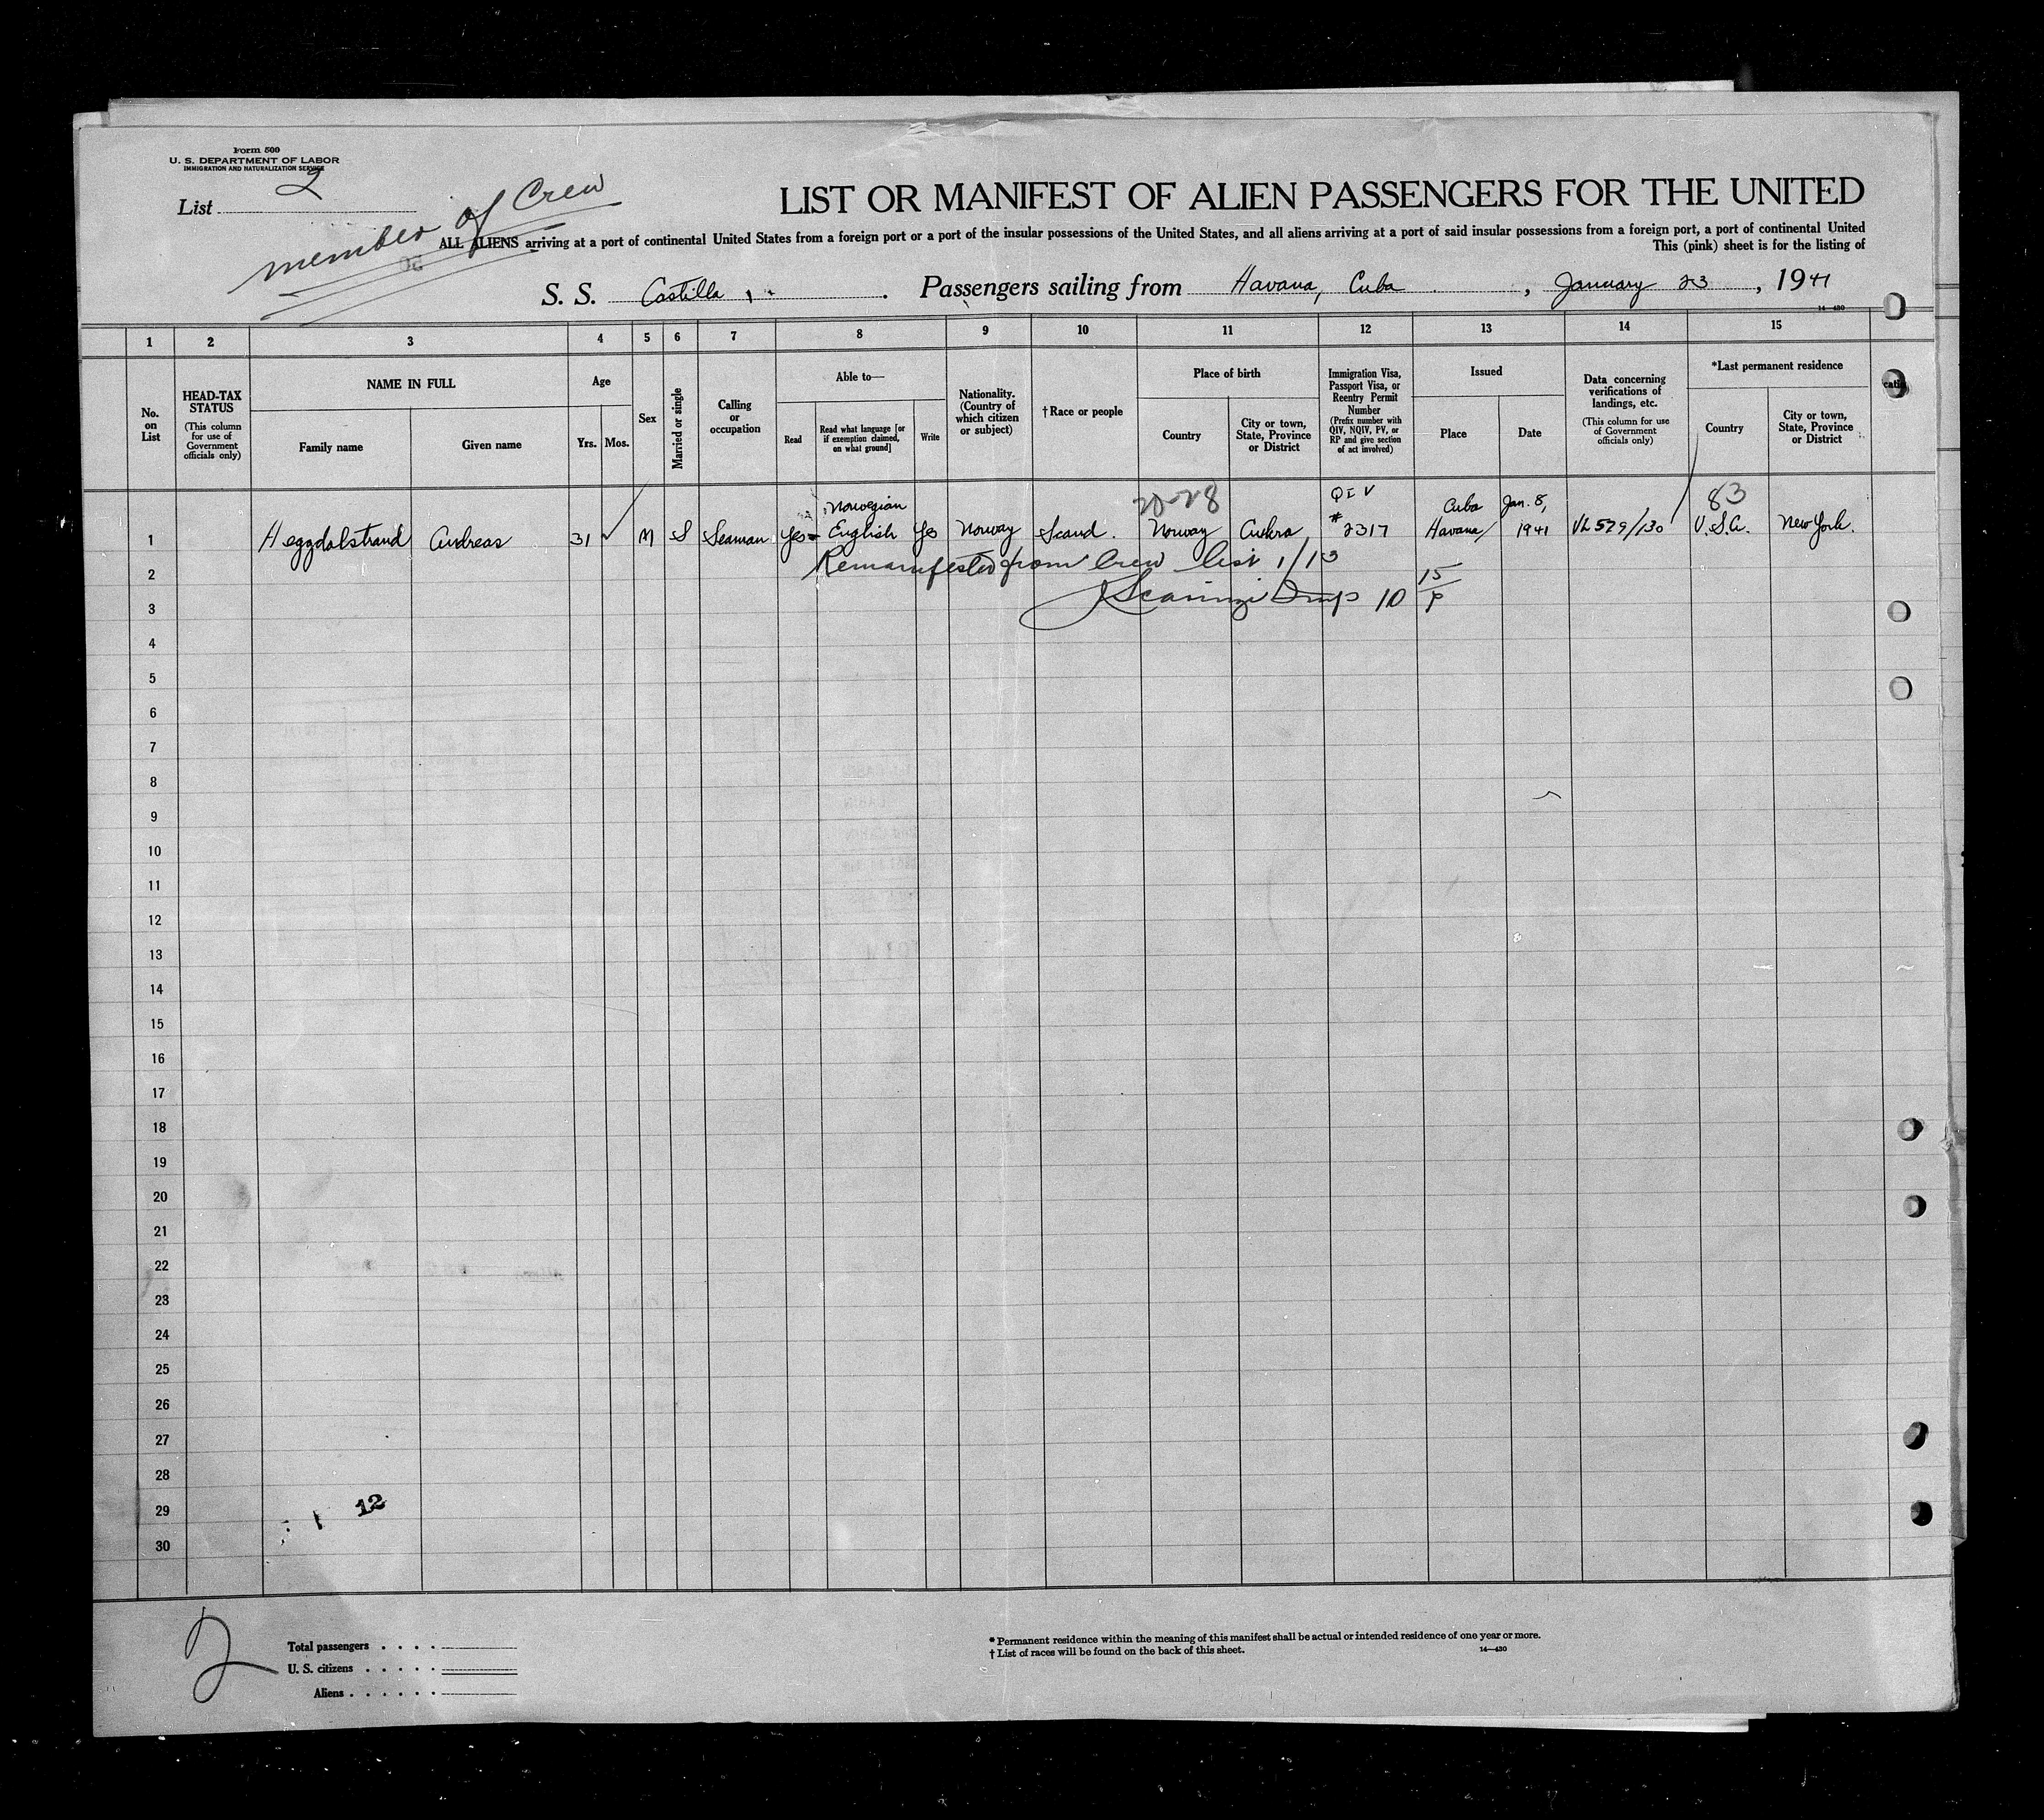 Form 500
U. S. DEPARTMENT OF LABOR
IMMIGRATION AND NATURALIZATION SERVICE
List 2
member of Crew
LIST OR MANIFEST OF ALIEN PASSENGERS FOR THE UNITED
ALL ALIENS arriving at a port of continental United States from a foreign port or a port of the insular possessions of the United States, and all aliens arriving at a port of said insular possessions from a foreign port, a port of continental United
This (pink) sheet is for the listing of
S. S. Castilla, Passengers sailing from Havana, Cuba, January 23, 1941
14—430
1 2 3 4 5 6 7 8 9 10 11 12 13 14 15
No. on List
HEAD-TAX STATUS
(This column for use of Government officials only)
NAME IN FULL
Family name
Given name
Age
Yrs.
Mos.
Sex
Married or single
Calling or occupation
Able to—
Read
Read what language [or if exemption claimed, on what ground]
Write
Nationality. (Country of which citizen or subject)
†Race or people
Place of birth
Country
City or town, State, Province or District
Immigration Visa, Passport Visa, or Reentry Permit Number
(Prefix number with QIV, NQIV, PV, or RP and give section of act involved)
Issued
Place
Date
Data concerning verifications of landings, etc.
(This column for use of Government officials only)
*Last permanent residence
Country
City or town, State, Province or District
Norwegian 20-28 QIV Cuba Jan. 8, 83
1 Heggdalstrand Andreas 31 ✓ M S Seaman Yes English Yes Norway Scand. Norway Aukra #2317 Havana 1941 VL 529/130 U.S.A. New York.
2 Remanifested from Crew list 1/13
3 Insp 10 15/P
4
5
6
7
8
9
10
11
12
13
14
15
16
17
18
19
20
21
22
23
24
25
26
27
28
29 12
30
2
Total passengers
U. S. citizens
Aliens
* Permanent residence within the meaning of this manifest shall be actual or intended residence of one year or more.
† List of races will be found on the back of this sheet.
14—430